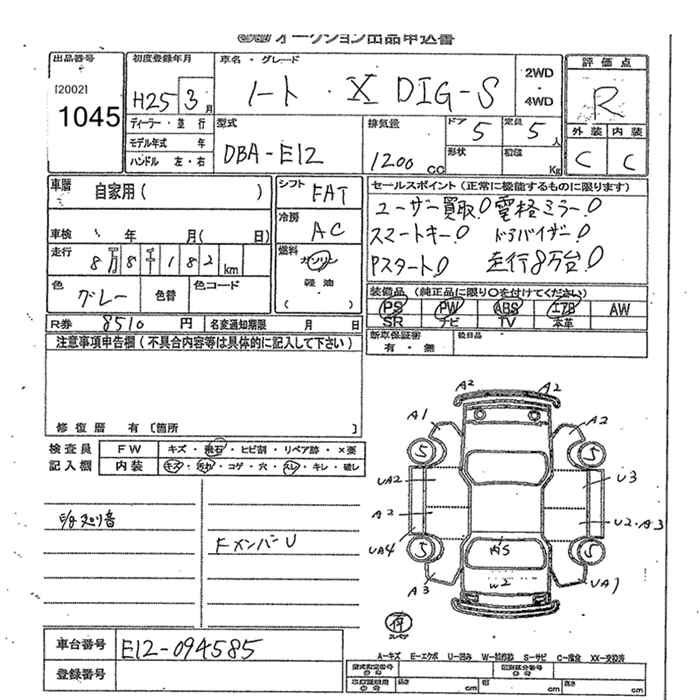 オークション出品申込書
出品番号
[2002]
1045
初度登録年月
H25 3 月
ディーラー・並行
モデル年式 年
ハンドル 左・右
車名・グレード
ノート・X DIG-S
2WD
・
4WD
評価点
R
外装 内装
C C
型式
DBA-E12
排気量
1200 cc
ドア 5
定員 5 人
形状
積載 Kg
車歴 自家用( )
車検 年 月( 日)
走行 8万8千182 km
色 グレー 色替 色コード
R券 8510 円 名変通知期限 月 日
シフト FAT
冷房 AC
燃料 ガソリン
・
軽油
( )
セールスポイント(正常に機能するものに限ります)
ユーザー買取!○ 電格ミラー!○
スマートキー!○ ドラバイザー!○
Pスタート!○ 走行8万台!○
装備品(純正品に限り○を付けてください)
PS PW ABS エアB AW
SR ナビ TV 本革
新車保証書 後日品
有・無
注意事項申告欄(不具合内容等は具体的に記入して下さい)
修復歴 有〔箇所 〕
検査員
記入欄
FW キズ・飛石・ヒビ割・リペア跡・×要
内装 キズ・汚れ・コゲ・穴・スレ・キレ・破レ
FメンバーU
A2 A2
A1 A2
5 5
UA2 U3
A2 U2・A3
UA4
5 5
A3 W2 UA1
スペア
車台番号 E12-094585
登録番号
A-キズ E-エクボ U-凹み W-補修跡 S-サビ C-腐食 XX-交換済
型式指定番号 類別区分番号
長さ cm 幅 cm 高さ cm